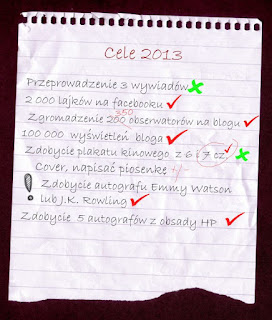 Cele 2013
Przeprowadzenie 3 wywiadów
2 000 lajków na facebooku
350
Zgromadzenie 200 obserwatorów na blogu
100 000 wyświetleń bloga
Zdobycie plakatu kinowego z 6 i 7 cz.
Cover, napisać piosenke
! Zdobycie autografu Emmy Watson
lub J.K. Rowling
Zdobycie 5 autografów z obsady HP